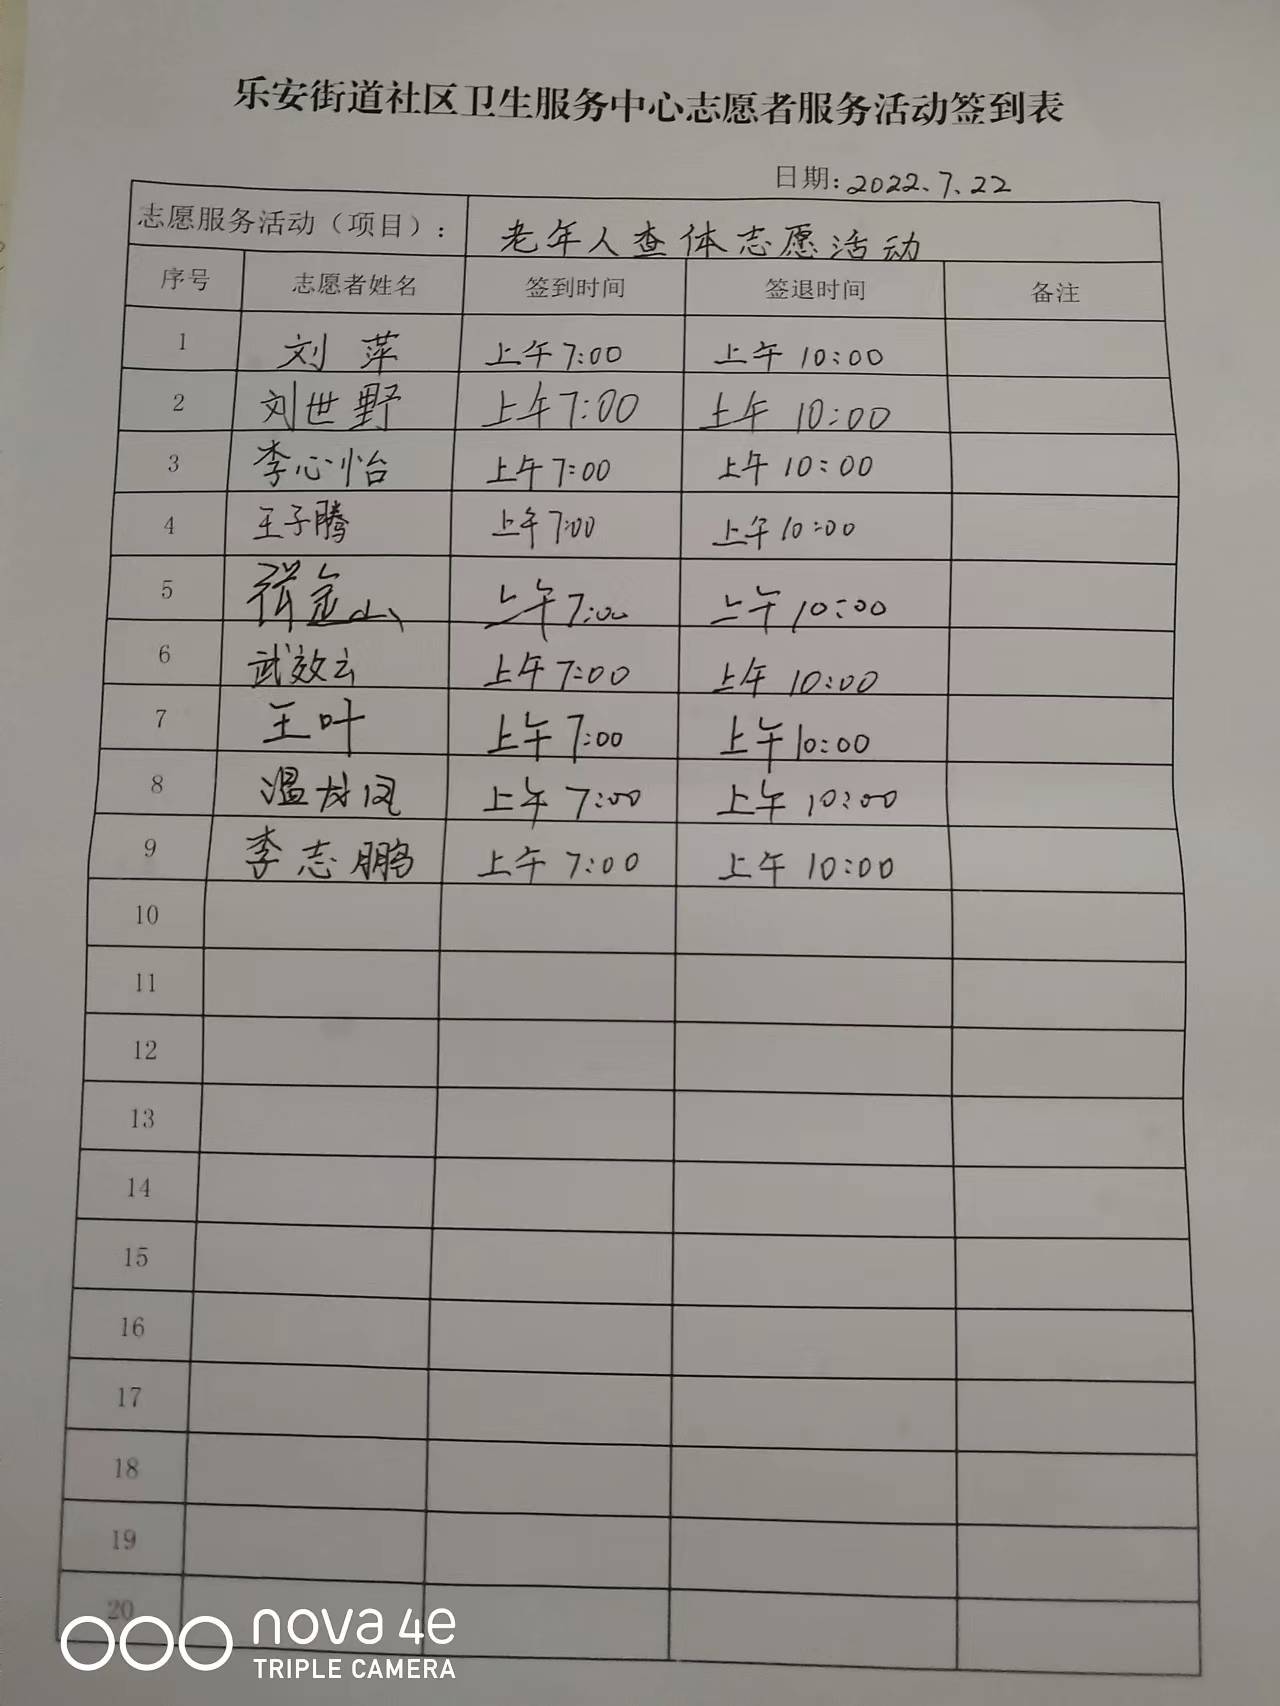 乐安街道社区卫生服务中心志愿者服务活动签到表
日期: 2022.7.22
志愿服务活动（项目）: 老年人查体志愿活动
序号 志愿者姓名 签到时间 签退时间 备注
1 刘萍 上午7:00 上午10:00
2 刘世野 上午7:00 上午10:00
3 李心怡 上午7:00 上午10:00
4 王子腾 上午7:00 上午10:00
5 张金山 上午7:00 上午10:00
6 武效云 上午7:00 上午10:00
7 王叶 上午7:00 上午10:00
8 上午7:00 上午10:00
9 李志鹏 上午7:00 上午10:00
10
11
12
13
14
15
16
17
18
19
20
nova 4e
TRIPLE CAMERA